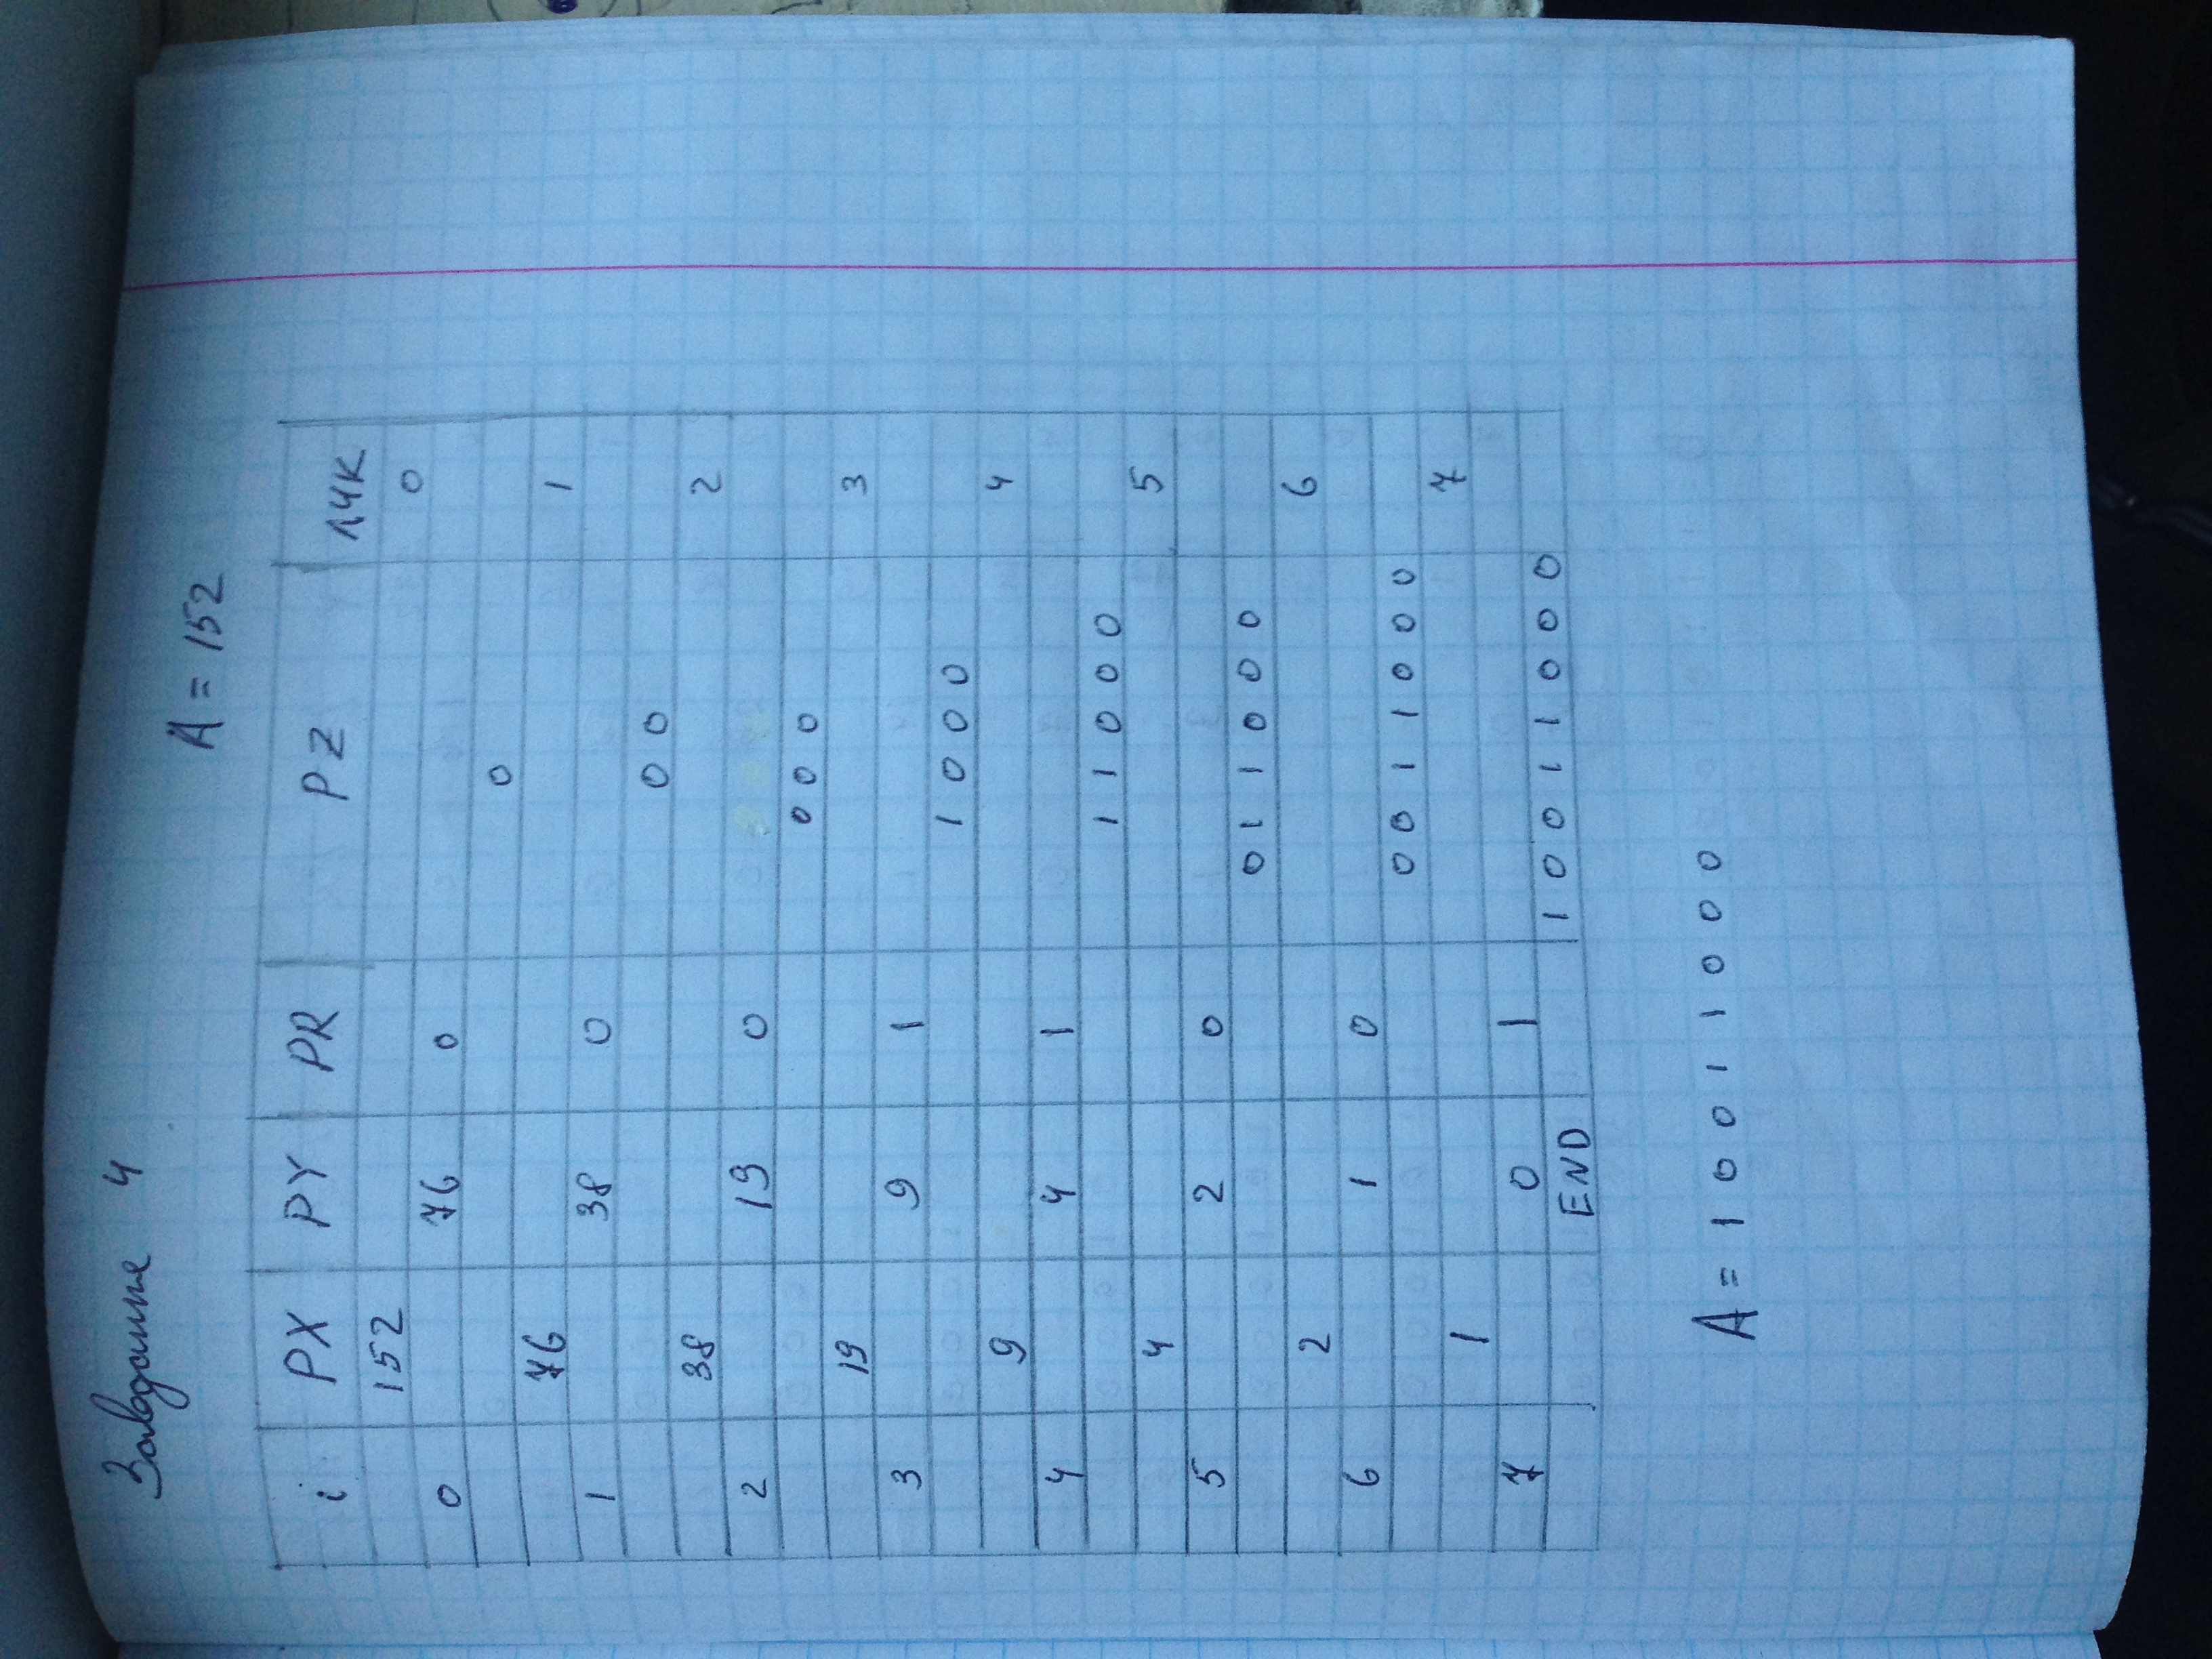 Завдання 4
A = 152
i PX PY PR PZ ЛЧК
152 0
0 76 0
0
76 1
1 38 0
0 0
38 2
2 19 0
0 0 0
19 3
3 9 1
1 0 0 0
9 4
4 4 1
1 1 0 0 0
4 5
5 2 0
0 1 1 0 0 0
2 6
6 1 0
0 0 1 1 0 0 0
1 7
7 0 1
END 1 0 0 1 1 0 0 0
A = 1 0 0 1 1 0 0 0